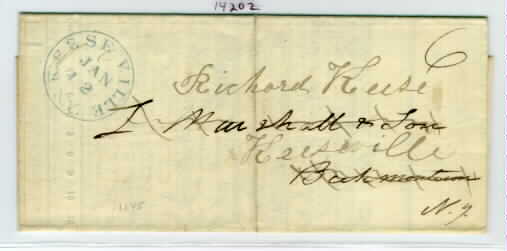 14202
6
KEESEVILLE N.Y.
JAN
2
Richard Keese
L Marshall & Son
Keeseville
Beekmantown
N. Y.
1145